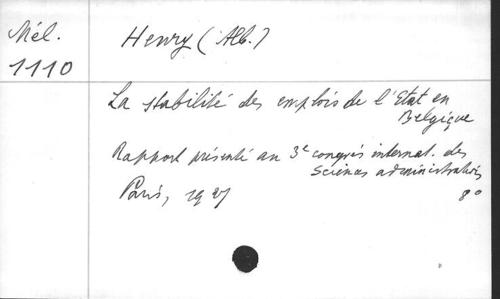 Mél.
1110
Henry (Alb.)
La stabilité des emplois de l'Etat en
Belgique
Rapport présenté au 3e congrès internat. des
Sciences administratives
Paris, 1927
8°